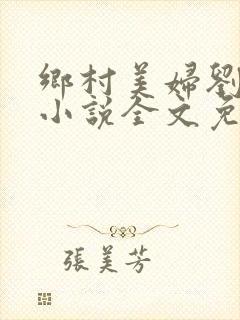 鄉村美婦劉
小說全文免
張美芳